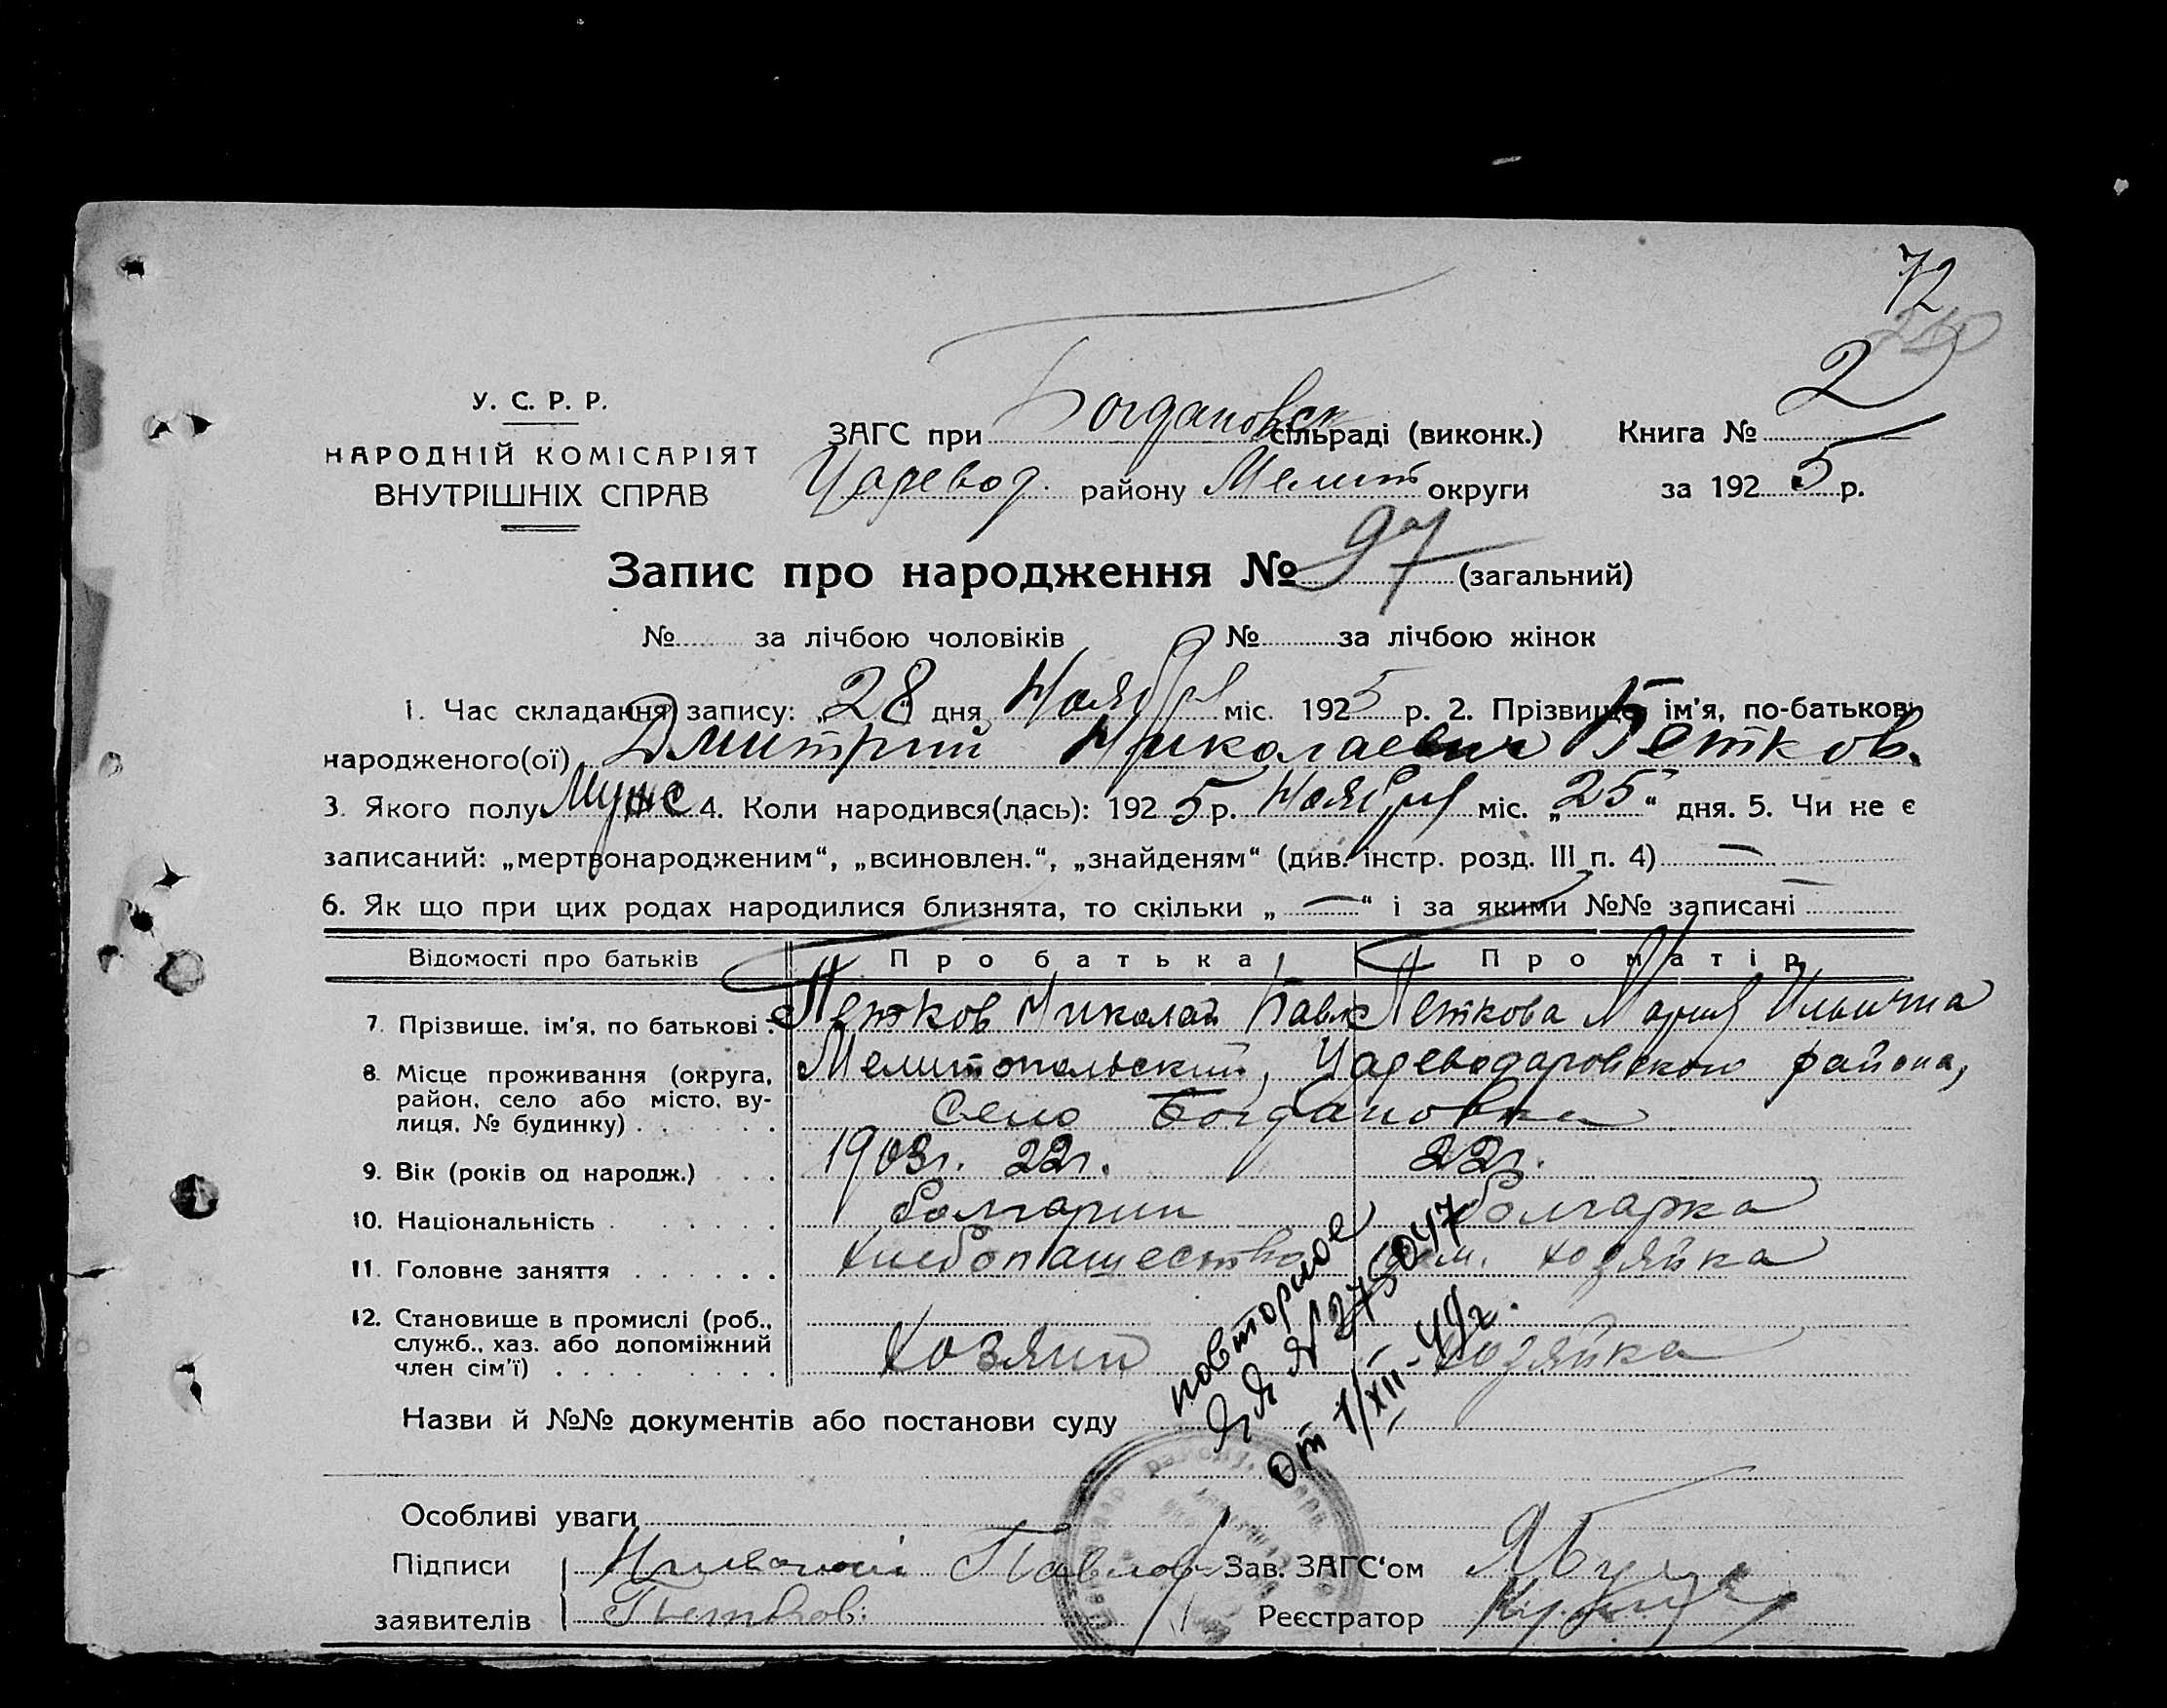 72
У. С. Р. Р.
НАРОДНІЙ КОМІСАРІЯТ
ВНУТРІШНІХ СПРАВ
ЗАГС при Богдановск сільраді (виконк.) Книга № 2
Царевод. району Мелит округи за 1925 р.
Запис про народження № 97 (загальний)
№ за лічбою чоловіків № за лічбою жінок
1. Час складання запису: „28" дня Ноября міс. 1925 р. 2. Прізвище, ім'я, по-батькові
народженого(ої) Дмитрий Николаевич Петков.
3. Якого полу Мужс 4. Коли народився(лась): 1925 р. Ноября міс. „25" дня. 5. Чи не є
записаний: „мертвонародженим", „всиновлен.", „знайденям" (див. інстр. розд. III п. 4) —
6. Як що при цих родах народилися близнята, то скільки „—" і за якими №№ записані —
Відомості про батьків Про батька Про матір
7. Прізвище, ім'я, по батькові Петков Николай Павл Петкова Мария Ильична
8. Місце проживання (округа, Мелитопольский, Цареводаровского района,
район, село або місто, ву-
лиця, № будинку) Село Богдановка
9. Вік (років од народж.) 1903г. 22г. 22г.
10. Національність болгарин болгарка
11. Головне заняття хлебопашество дом. хозяйка
12. Становище в промислі (роб.,
служб., хаз. або допоміжний
член сім'ї) хозяин хозяйка
повторное
№ 275047
от 1/XII-49г.
Назви й №№ документів або постанови суду
Особливі уваги
Підписи Николай Павлов Зав. ЗАГС'ом
заявителів Петков. Реєстратор